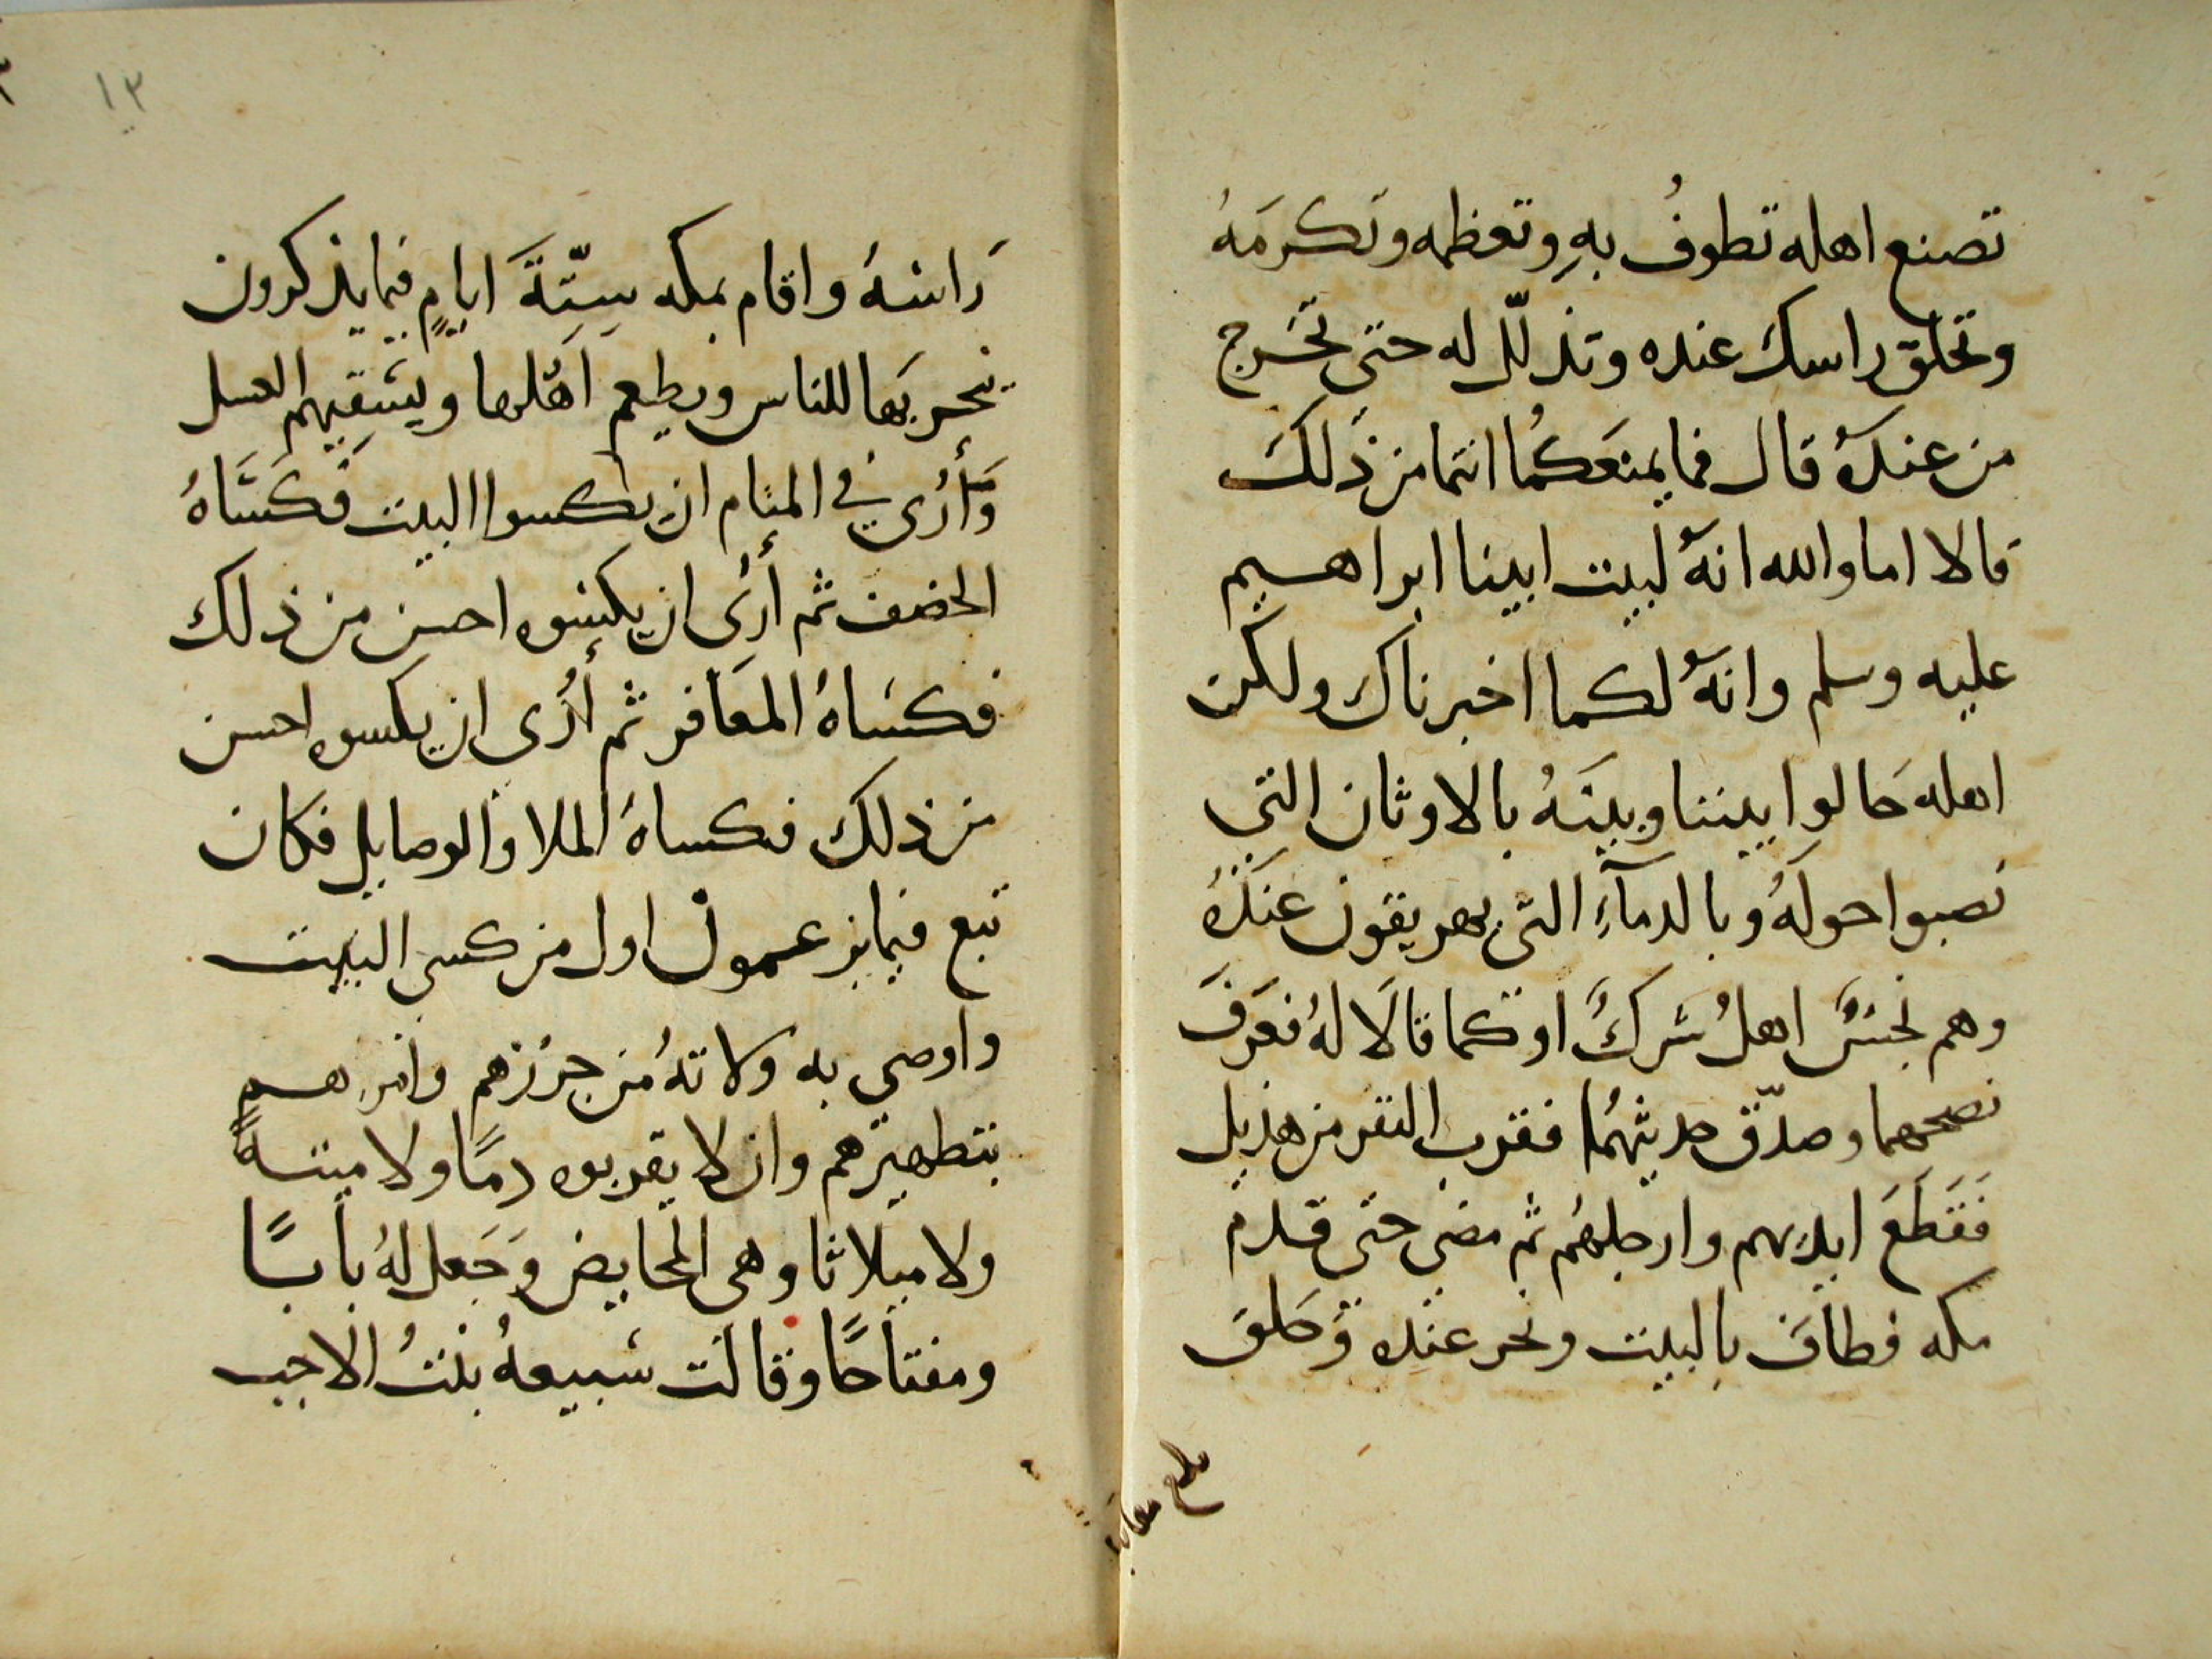 تصنع اهله تطوفُ بهِ وتعظمه وتكرمَهُ
وتحلق راسكَ عنده وتذلّل له حتى تخرج
من عندهُ قال فما يمنعَكُما انتما من ذَلكَ
قالا اما والله انهُ لبيت ابينا ابراهيم
عليه وسلم وانهُ لكما اخبرناك ولكن
اهله حَالوا بيننا وبينَهُ بالاوثان التي
نَصبوا حولهُ وبالدمآءِ التى يهريقون عندَهُ
وهم نجسٌ اهلُ شركٌ او كما قالَا لهُ فعَرفَ
نصحهما وصدّق حديثهُما فقرب النفر من هذيل
فَقَطَعَ ايديهم وارجلهُم ثم مضى حتى قدم
مكه فطافَ بِالبيت ونحر عنده وَحَلقَ
رَاسَهُ واقام بمكه سِتّةَ ايامٍ فيما يذكرون
ينحر بهَا للناس ويطعم اهْلها ويَسْقيهم العسل
وَأُرى في المنام ان يكسوا البيت فكسَاهُ
الخصف ثم أُرىَ ان يكسوه احسن من ذلك
فكسَاهُ المعَافر ثم أُرى ان يكسوه احسن
من ذلك فكساهُ الملا والوصايل فكان
تبع فيما يزعمون اول من كسى البيت
واوصى به ولاتهُ من جرْهم وامرهم
بتطهيرهم وان لا يقربوه دمًا ولا ميتهً
ولا ميلاثا وهى المحايض وَجَعل لهُ بابًا
ومفتاحًا وقالت سُبيعهُ بنْتُ الاجب
بلغ مقابله
١٣